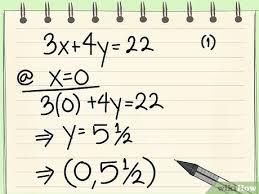 3x+4y=22 (1)
@ x=0
3(0)+4y=22
⇒ y=5½
⇒ (0,5½)
wikiHow